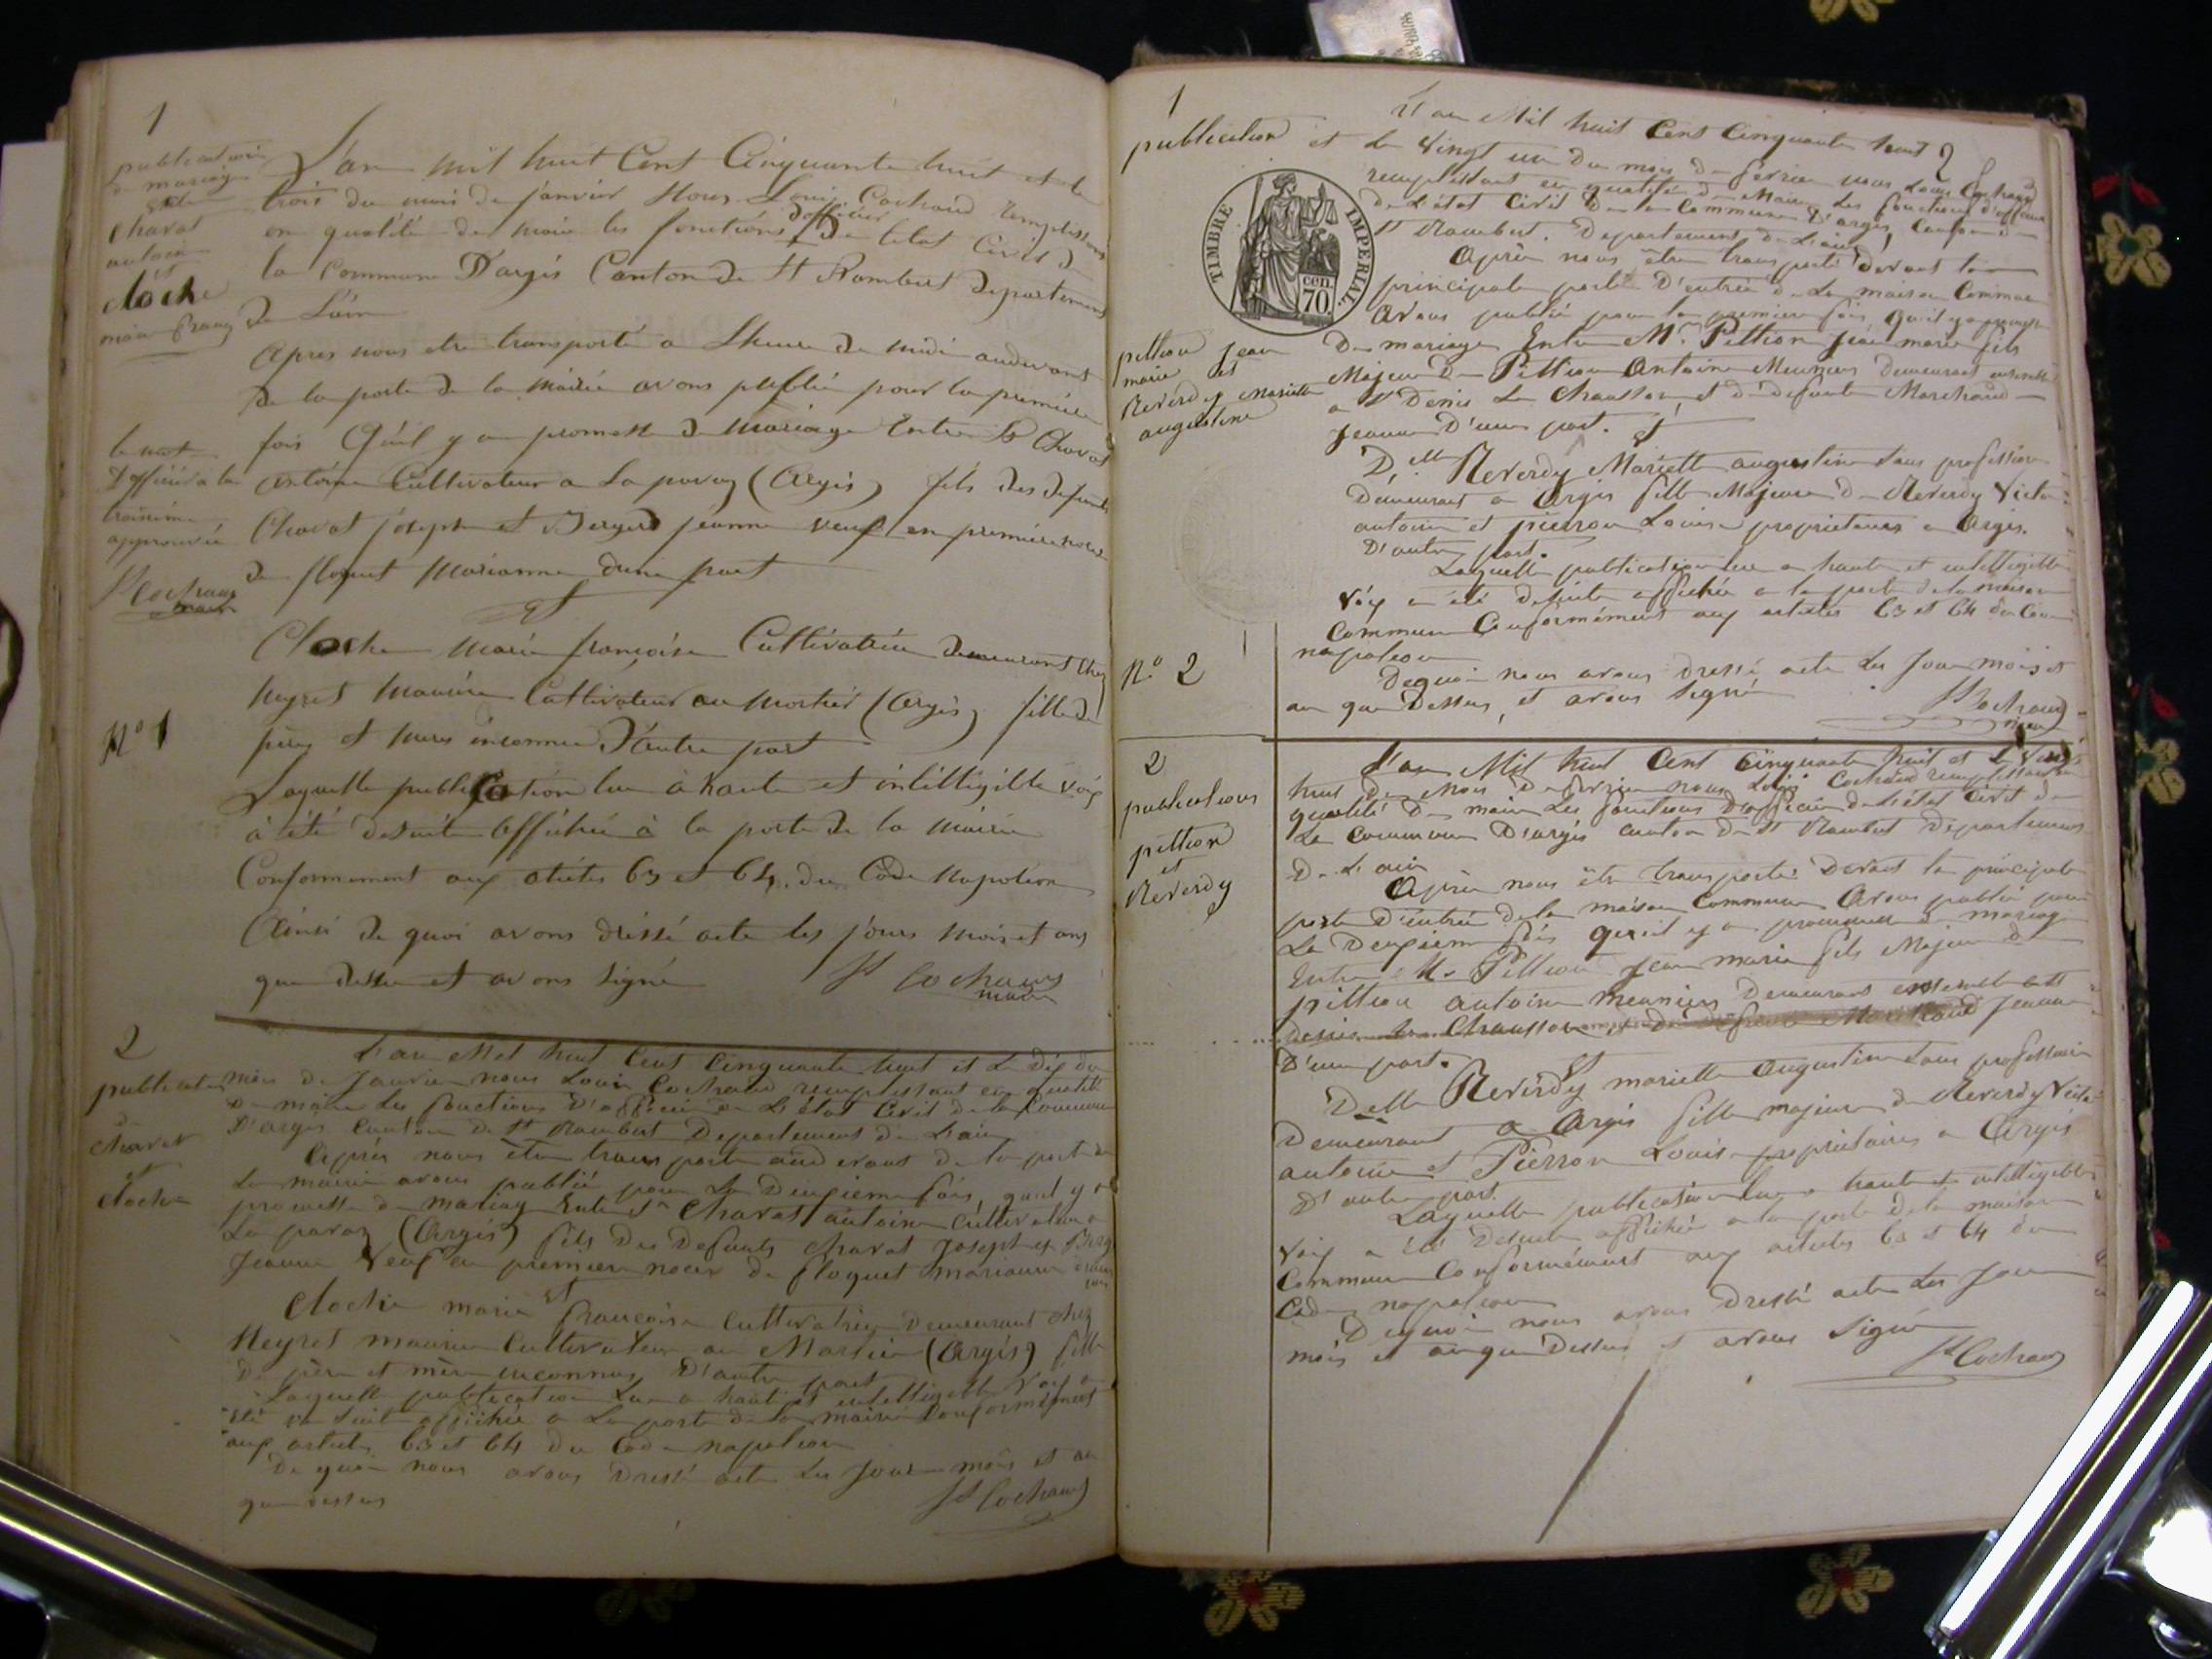 1
publication
de mariage
entre
Charat
antoine
et
cloche
marie franç
L'an mil huit Cent Cinquante huit et le
trois du mois de janvier Nous Louis Cochaud remplissant
en qualité de maire les fonctions d'officier de l'état Civil de
la Commune D'argis Canton de St Rambert departement
de L'ain
Apres nous etre transporté a Lheure de midi audevant
De la porte de la Mairie avons publiée pour la premiere
fois Qu'il y a promesse de Mariage Entre Sr Charat
antoine Cultivateur a La pavaz (Argis) fils des defunts
Charat joseph et Berger jéanne veuf en premiere noces
de floquet Marianne dune part
le mot
D'officier à la
troisième
approuvée
St Cochaud
maire
et
Cloche Marie françoise Cultivatrice demeurant chez
Neyret Maurice Cultivateur au Mortier (Argis) fille de
père et mere inconnue D'autre part
No 1
Laquelle publication lue à haute et intelligible voix
à été desuite Affichée à la porte de la Mairie
Conformement aux articles 63 et 64. du Code Napoléon
Ainsi de quoi avons dréssé acte les jours Mois et ans
que dessus et avons signé St Cochaud
maire
2
publication
de
Charat
et
cloche
L'an Mil huit Cent Cinquante huit et Le Dix du
mois de Janvier nous Louis Cochaud remplissant en qualité
De maire Les fonctions D'officier de L'état Civil de la Commune
D'argis Canton de St Rambert Departement de L'ain
Après nous être transporté audevant de la porte de
La mairie avons publié pour La Deuxieme fois, qu'il y a
promesse de mariage Entre Sr Charat antoine Cultivateur a
La pavaz (Argis) fils Des Defunts Charat Joseph et Berger
Jeanne Veuf en premiere noces de floquet marianne d'une
part
et
Cloche marie françoise Cultivatrice Demeurant chez
Neyret maurice Cultivateur au Mortier (Argis) fille
De père et mère inconnus D'autre part
Laquelle publication Lue a haute et intelligible Voix a
été De suite affichée a La porte de La mairie Conformément
aux articles 63 et 64 du Code napoléon
De quoi nous avons Dressé acte Les Jour mois et an
que dessus St Cochaud
1
publication
L'an Mil huit Cent Cinquante huit 2
et Le Vingt un du mois de fevrier nous Louis Cochaud
remplissant en qualité de Maire Les fonctions d'officier
De L'état Civil De la Commune D'argis, Canton de
St Rambert. Departement de L'ain
TIMBRE IMPERIAL.
cen.
70.
Après nous être transporté Devant la
principale porte D'entrée de La maison Commune
Avons publié pour la premiere fois Qu'il y a promesse
De mariage Entre Mr Pittion jean marie fils
Majeur De Pittion Antoine Meunier Demeurant ensemble
a St Denis Le Chausson et de defunte Marchand
Jeanne D'une part. et
pittion jean
marie et
Reverdy Mariette
augustine
Dlle Reverdy Mariette augustine sans profession
Demeurant a Argis fille Majeure De Reverdy Victor
antoine et pierron Louise propriétaires a Argis.
D'autre part.
Laquelle publication lue a haute et intelligible
Voix a été desuite affichée a la porte de la maison
Commune Conformément aux articles 63 et 64 du Code
napoleon
No 2
De quoi nous avons dressé acte Les Jour mois et
an que Dessus, et avons signé St Cochaud
maire
2
publications
pittion
et
Reverdy
L'an Mil huit Cent Cinquante huit et Le Vingt
huit Du Mois De fevrier nous Louis Cochaud remplissant en
qualité De maire Les fonctions D'officier de L'état Civil de
La Commune D'argis canton de St Rambert Departement
De L'ain
Après nous être transporté Devant la principale
porte D'entrée de la maison Commune Avons publié pour
La Deuxieme fois Qu'il y a promesse de mariage
Entre Mr Pittion Jean marie fils Majeur de
pittion antoine meunier Demeurant ensemble a St
Denis Le Chausson et de defunte Marchand Jeanne
D'une part.
et
Delle Reverdy mariette Augustine sans profession
Demeurant a Argis fille majeure de Reverdy Victor
antoine et Pierron Louise propriétaires a Argis
D'autre part.
Laquelle publication lue a haute et intelligible
Voix a été Desuite affichée a la porte de la maison
Commune Conformément aux articles 63 et 64 du
Code napoleon
De quoi nous avons Dressé acte Les Jour
mois et an que Dessus et avons Signé
St Cochaud